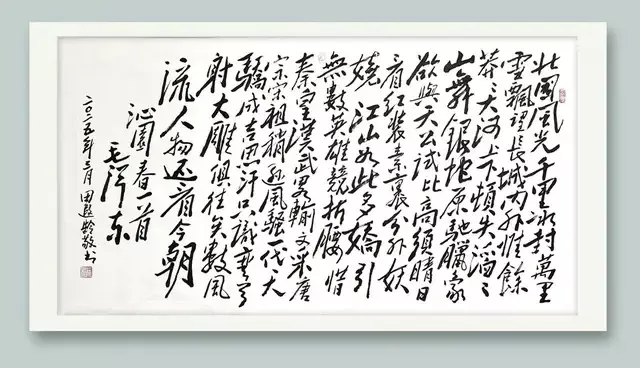 北國風光千里冰封萬里
雪飄望長城內外惟餘
莽〻大河上下頓失滔〻
山舞銀蛇原馳臘象
欲與天公試比高須晴日
看紅裝素裹分外妖
嬈江山如此多嬌引
無數英雄競折腰惜
秦皇漢武略輸文采唐
宗宋祖稍遜風騷一代天
驕成吉思汗只識彎弓
射大雕俱往矣數風
流人物還看今朝
沁園春一首
毛澤东
年三月田齡敬书